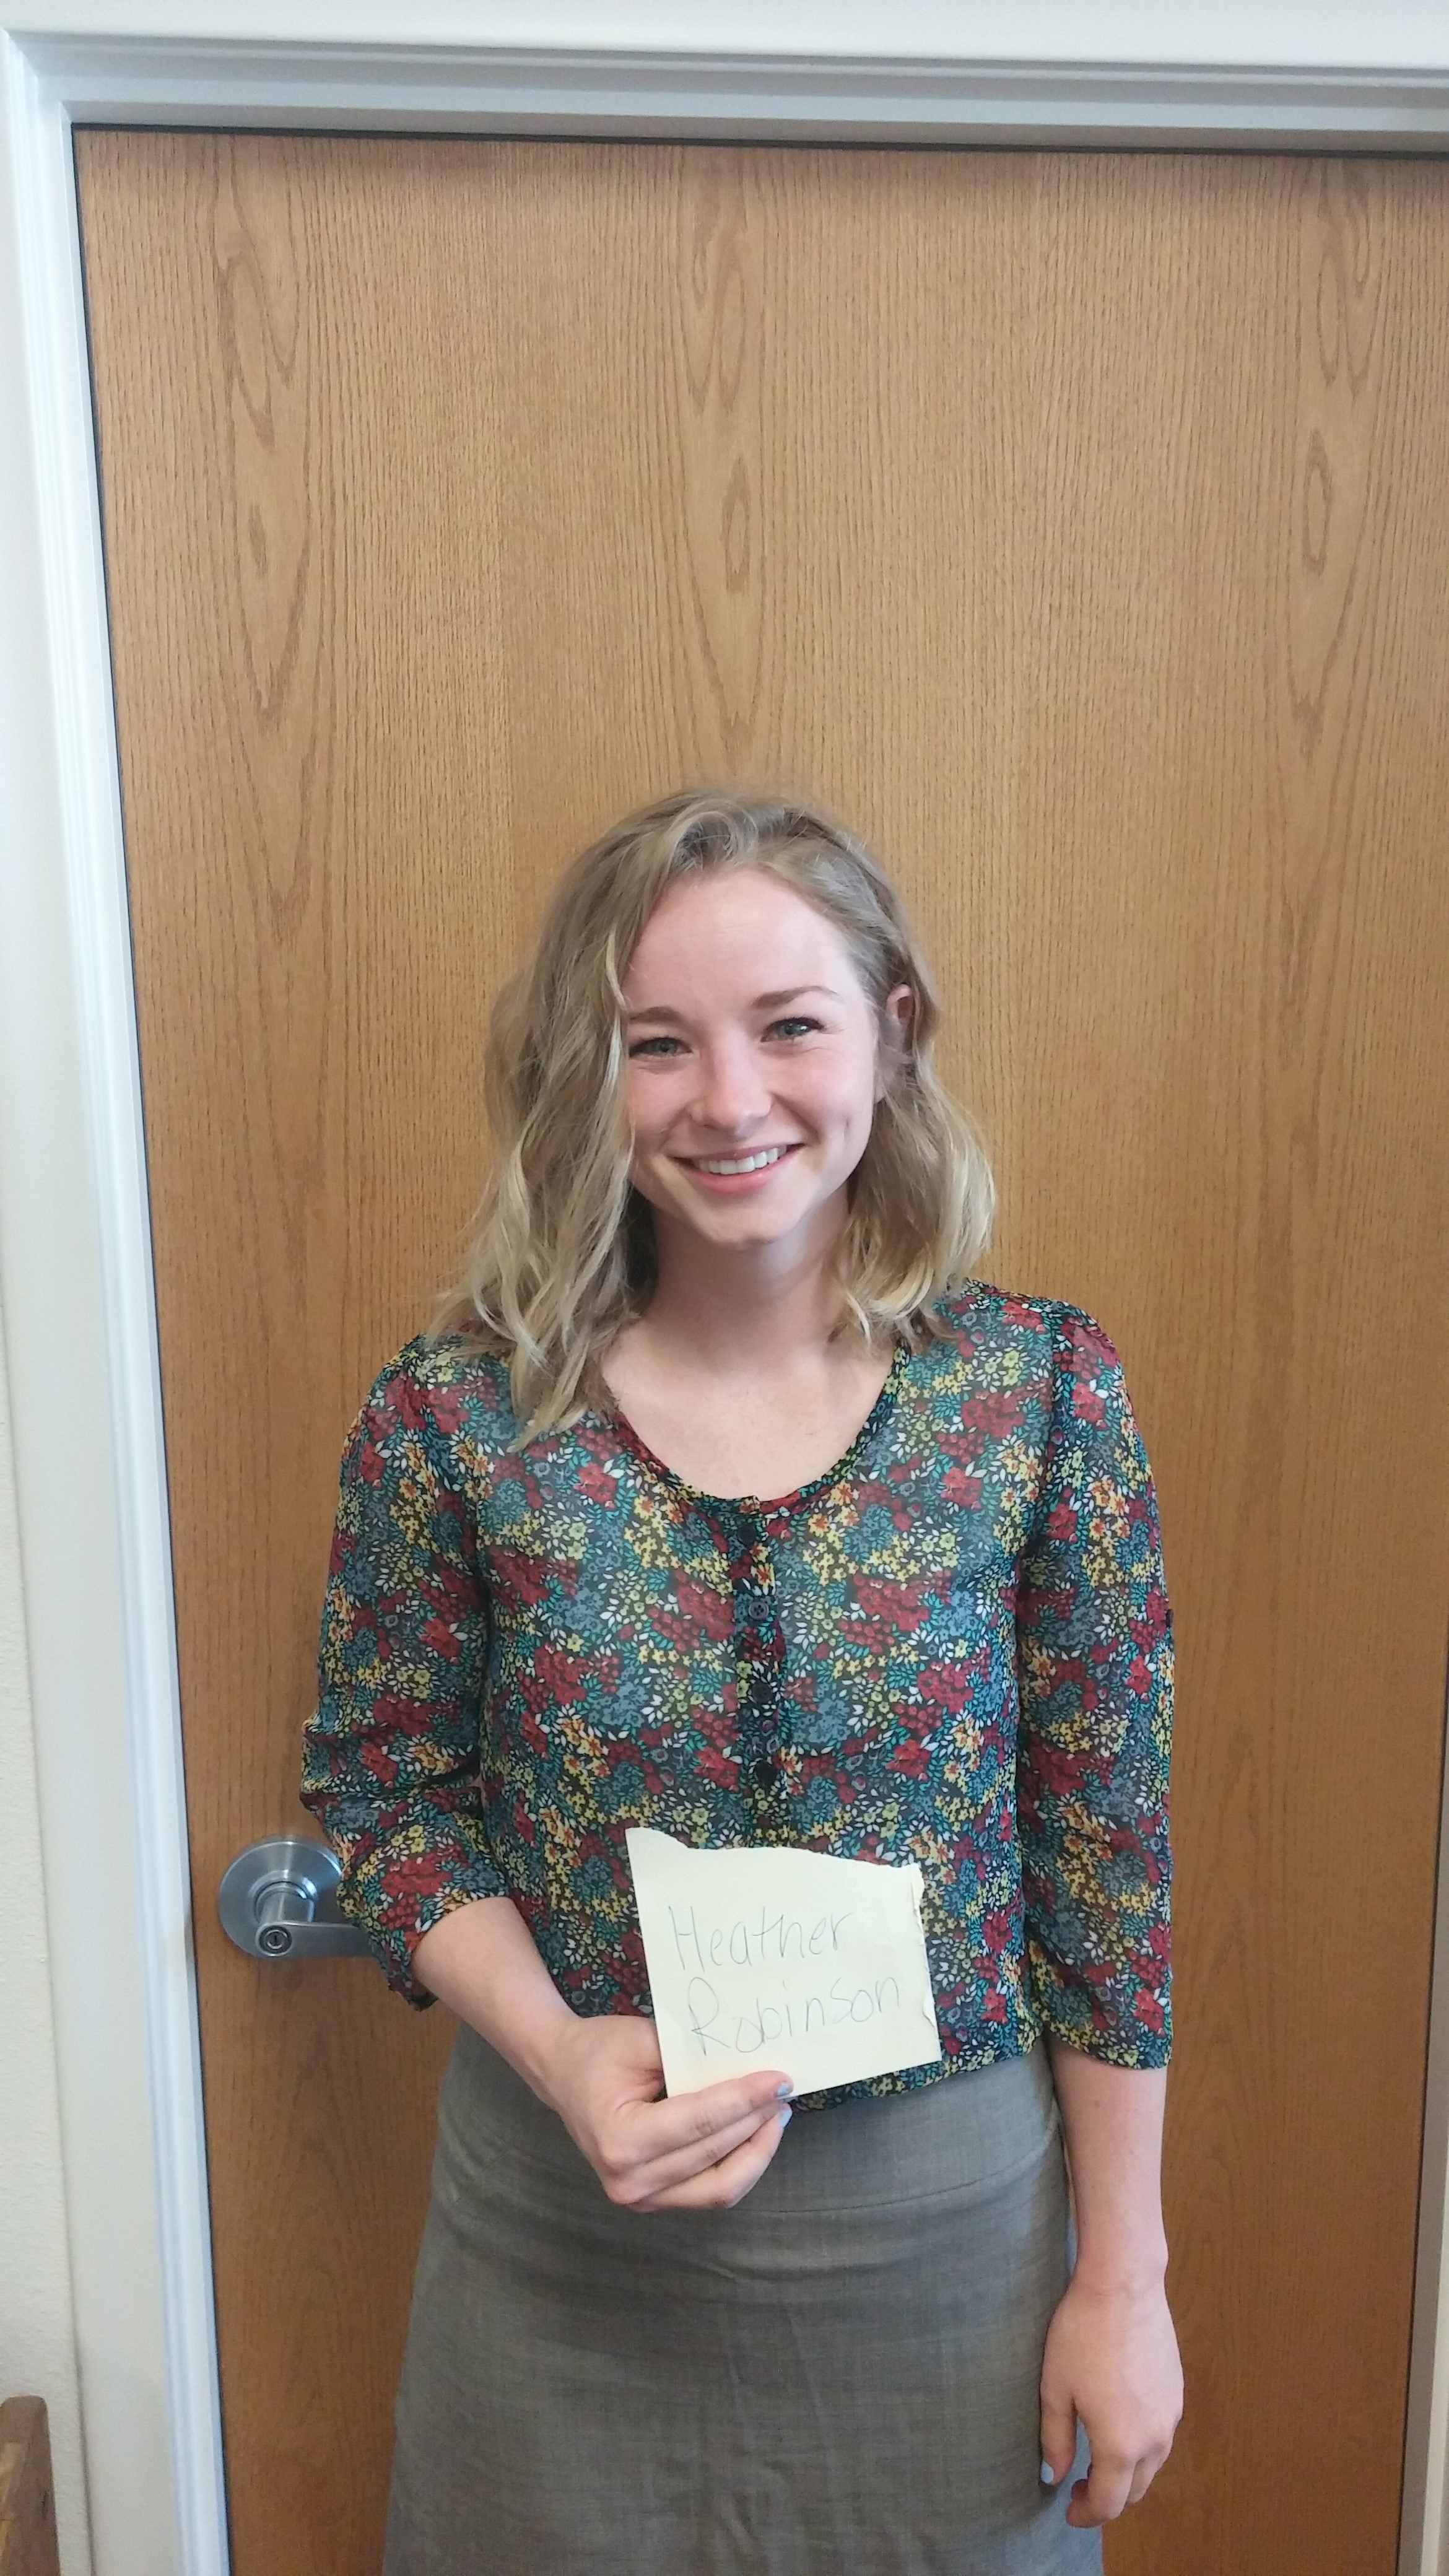 Heather
Robinson